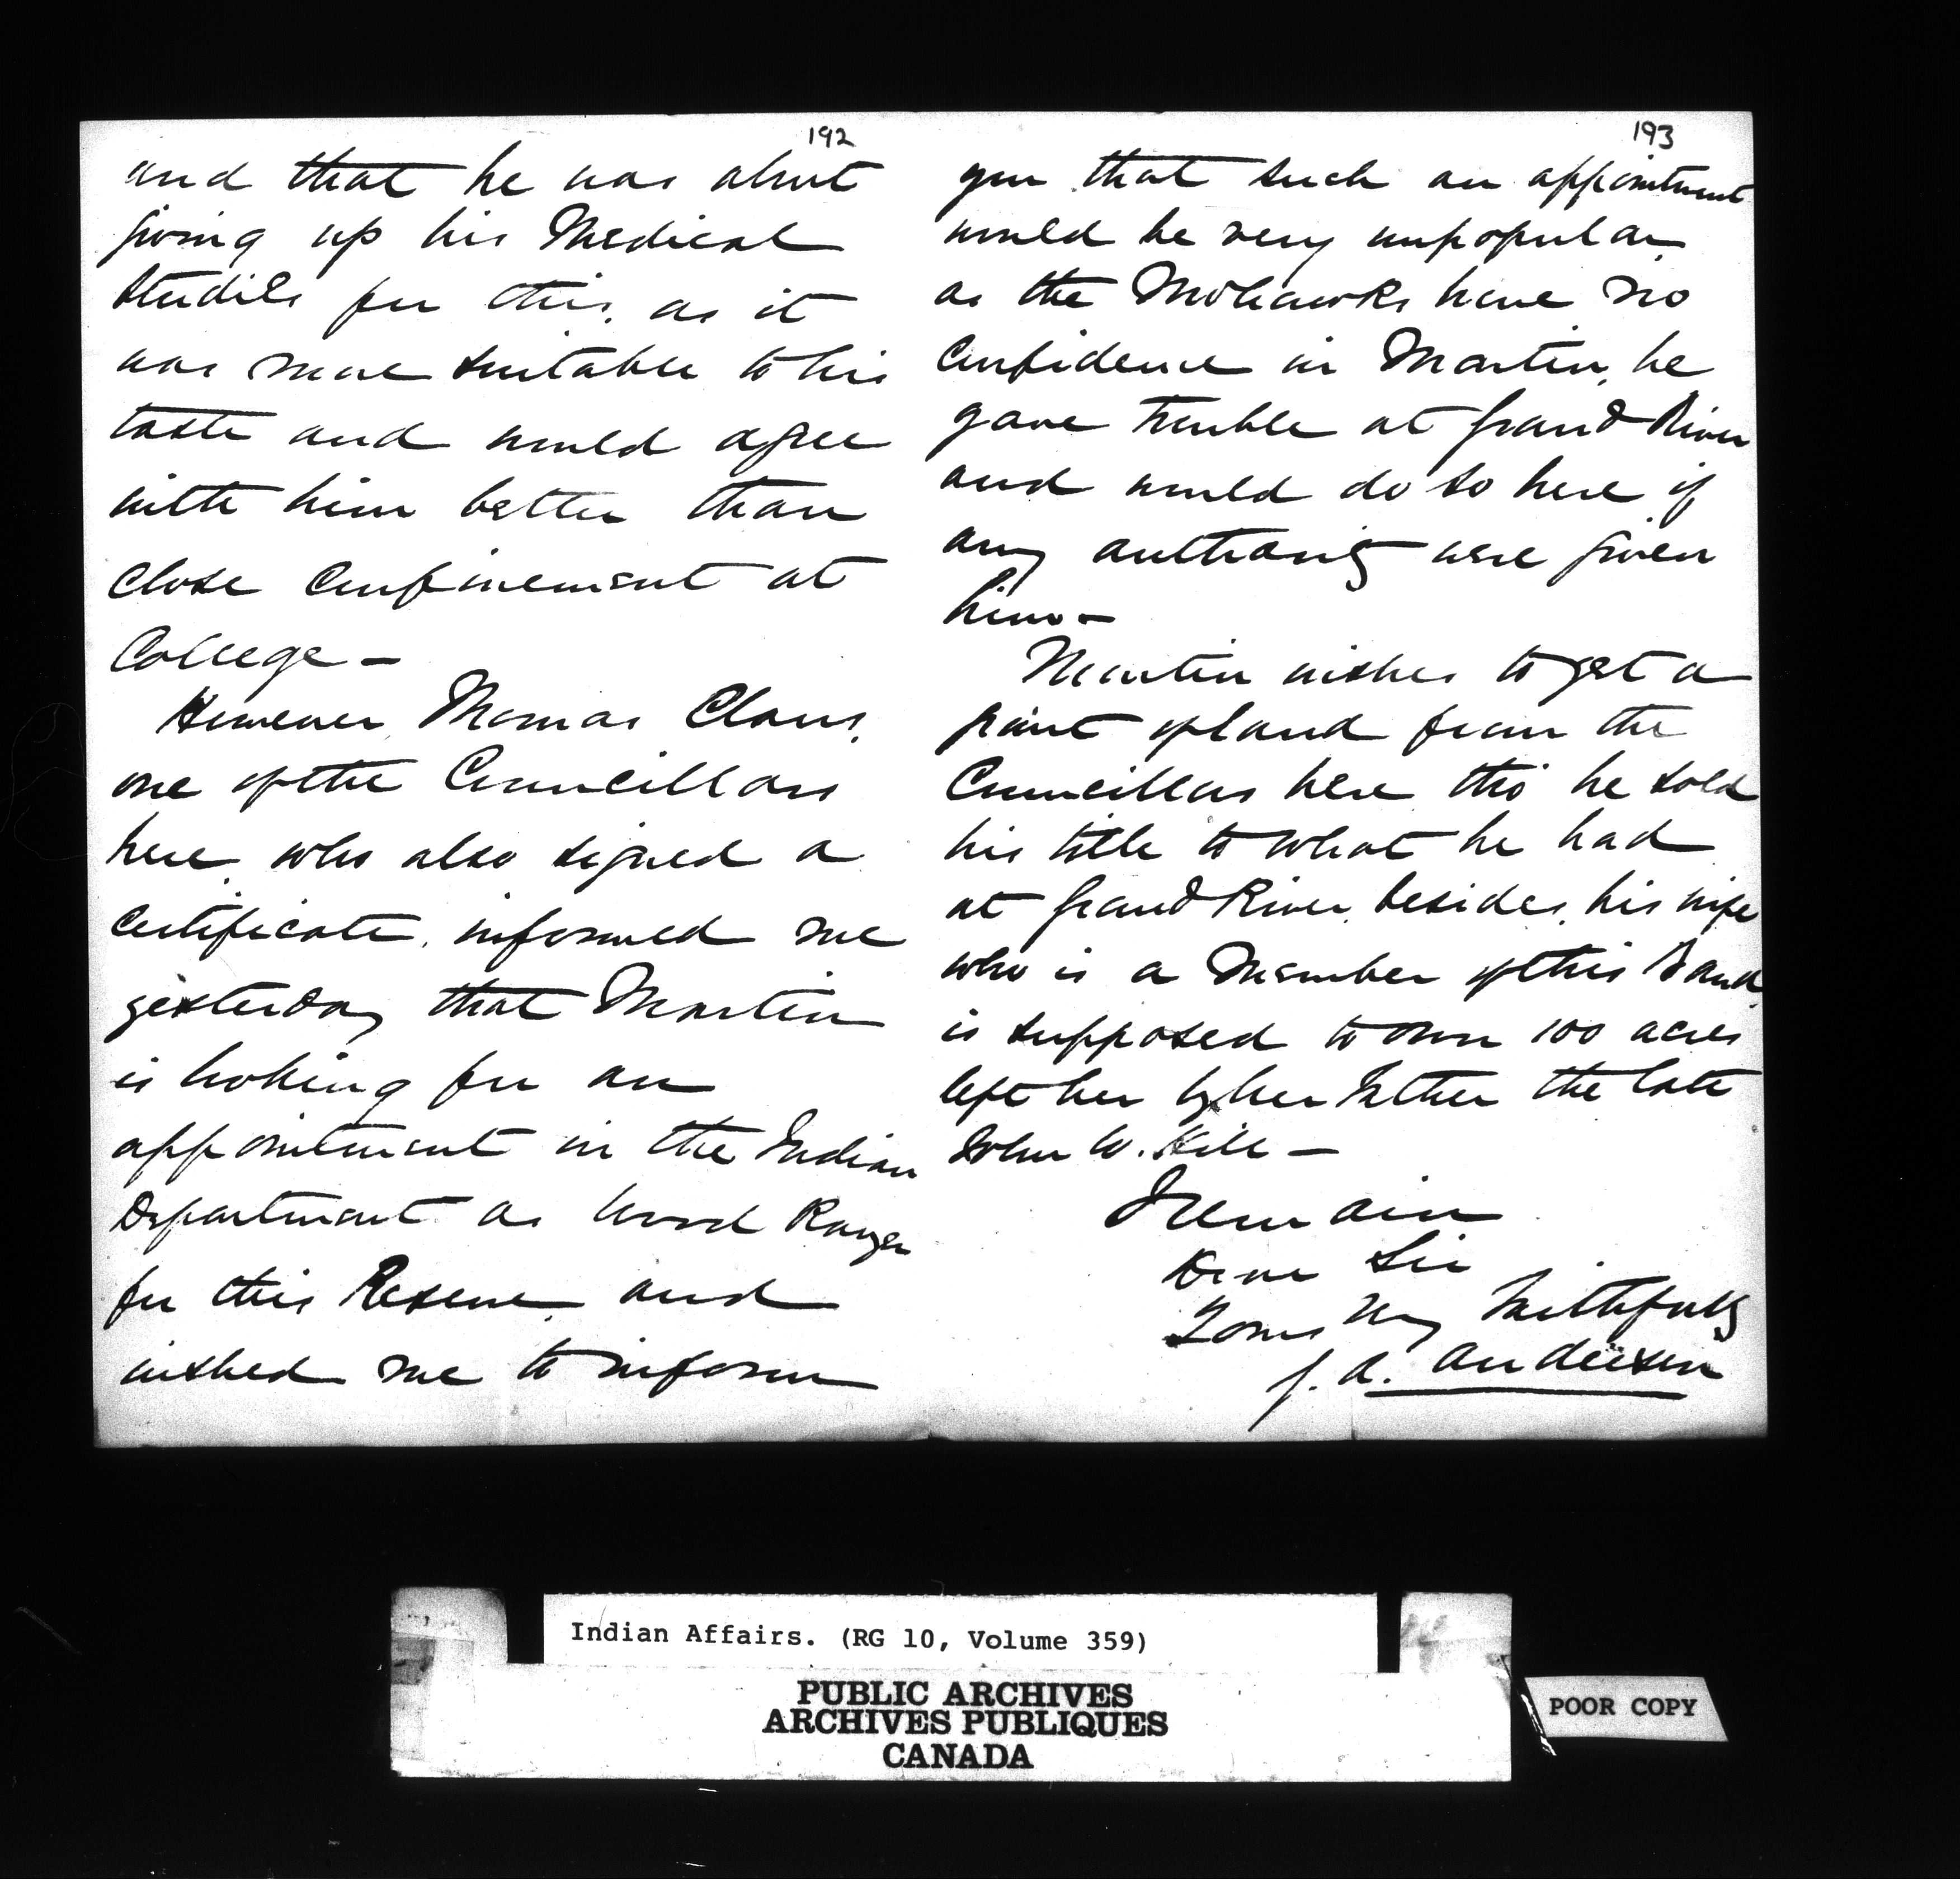 192
and that he was about
giving up his Medical
Studies for this, as it
was more suitable to his
taste and would agree
with him better than
close confinement at
College -
However, Thomas Claus,
one of the Councillors
here, who also signed a
certificate, informed me
yesterday that Martin
is looking for an
appointment in the Indian
Department as Wood Ranger
for this Reserve, and
wished me to inform
193
you that such an appointment
would be very unpopular
as the Mohawks have no
confidence in Martin, he
gave trouble at Grand River
and would do so here if
any authority were given
him -
Martin wishes to get a
grant of land from the
Councillors here tho' he sold
his title to what he had
at Grand River, besides, his wife
who is a Member of this Band,
is supposed to own 100 acres
left her by her Father the late
John W. Hill -
I remain
Dear Sir
Yours very faithfully
J. A. Anderson
Indian Affairs. (RG 10, Volume 359)
PUBLIC ARCHIVES
ARCHIVES PUBLIQUES
CANADA
POOR COPY